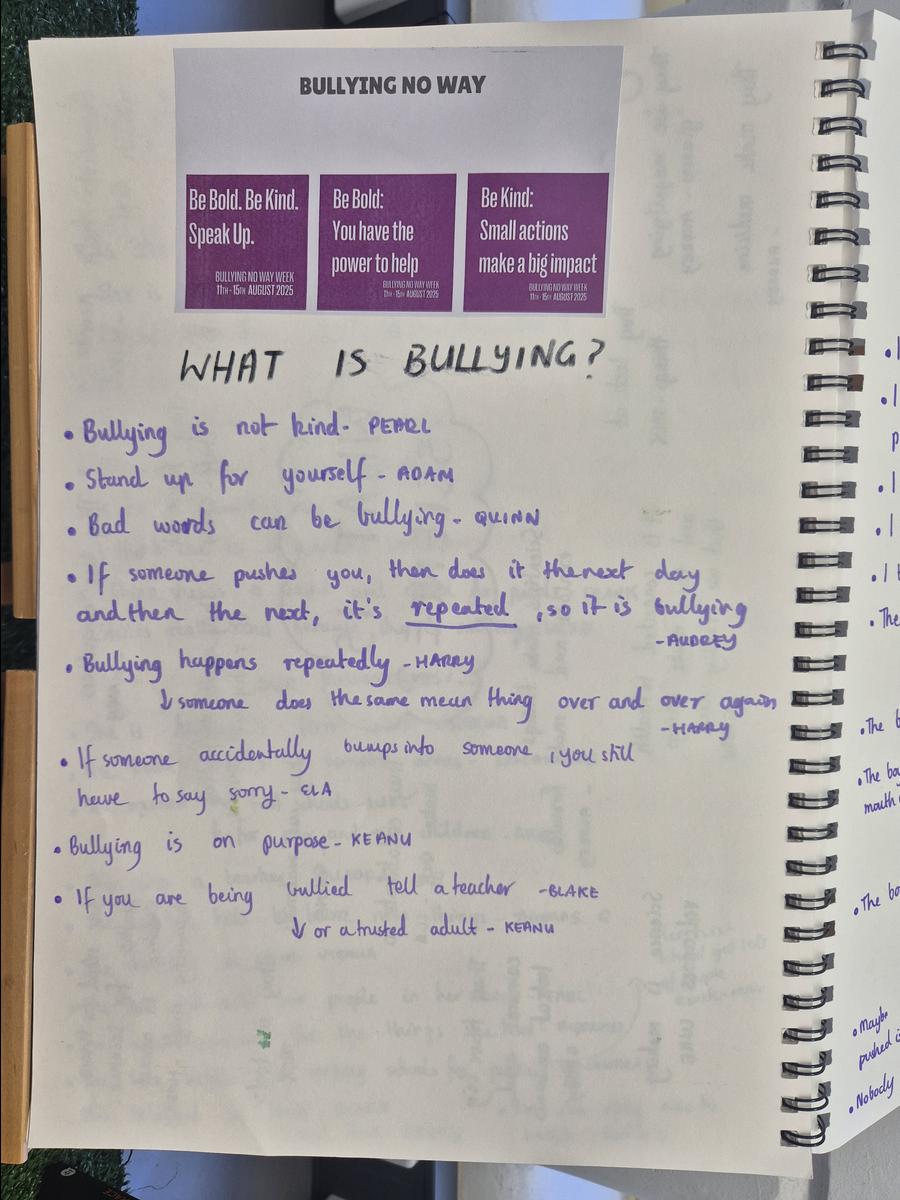 BULLYING NO WAY
Be Bold. Be Kind.
Speak Up.
BULLYING NO WAY WEEK
11TH - 15TH AUGUST 2025
Be Bold:
You have the
power to help
BULLYING NO WAY WEEK
11TH - 15TH AUGUST 2025
Be Kind:
Small actions
make a big impact
BULLYING NO WAY WEEK
11TH - 15TH AUGUST 2025
WHAT IS BULLYING?
• Bullying is not kind - PEARL
• Stand up for yourself - ADAM
• Bad words can be bullying - QUINN
• If someone pushes you, then does it the next day
and then the next, it's repeated, so it is bullying
- AUDREY
• Bullying happens repeatedly - HARRY
↓ someone does the same mean thing over and over again
- HARRY
• If someone accidentally bumps into someone, you still
have to say sorry - ELA
• Bullying is on purpose - KEANU
• If you are being bullied tell a teacher - BLAKE
↓ or a trusted adult - KEANU
• The
• The
• The
mouth
• The
• Maybe
pushed
• Nobody